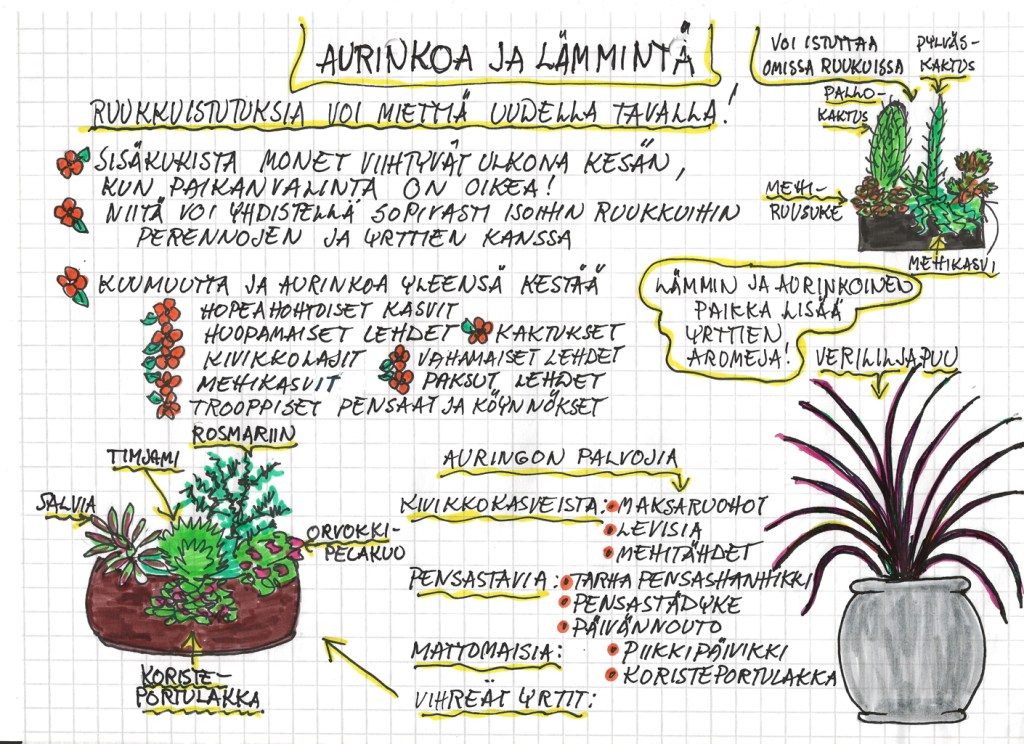 AURINKOA JA LÄMMINTÄ
RUUKKUISTUTUKSIA VOI MIETTIÄ UUDELLA TAVALLA!
SISÄKUKISTA MONET VIIHTYVÄT ULKONA KESÄN,
KUN PAIKANVALINTA ON OIKEA!
NIITÄ VOI YHDISTELLÄ SOPIVASTI ISOIHIN RUUKKUIHIN
PERENNOJEN JA YRTTIEN KANSSA
KUUMUUTTA JA AURINKOA YLEENSÄ KESTÄÄ
HOPEAHOHTOISET KASVIT
HUOPAMAISET LEHDET KAKTUKSET
KIVIKKOLAJIT VAHAMAISET LEHDET
MEHIKASVIT PAKSUT LEHDET
TROOPPISET PENSAAT JA KÖYNNÖKSET
VOI ISTUTTAA
OMISSA RUUKUISSA
PYLVÄS-
KAKTUS
PALLO-
KAKTUS
MEHI-
RUUSUKE
MEHIKASVI
LÄMMIN JA AURINKOINEN
PAIKKA LISÄÄ
YRTTIEN
AROMEJA!
VERILILJAPUU
ROSMARIIN
TIMJAMI
SALVIA
ORVOKKI-
PELAKUO
KORISTE-
PORTULAKKA
AURINGON PALVOJIA
KIVIKKOKASVEISTA: MAKSARUOHOT
LEVISIA
MEHITÄHDET
PENSASTAVIA: TARHA PENSASHANHIKKI
PENSASTÄDYKE
PÄIVÄNNOUTO
MATTOMAISIA: PIIKKIPÄIVIKKI
KORISTEPORTULAKKA
VIHREÄT YRTIT: